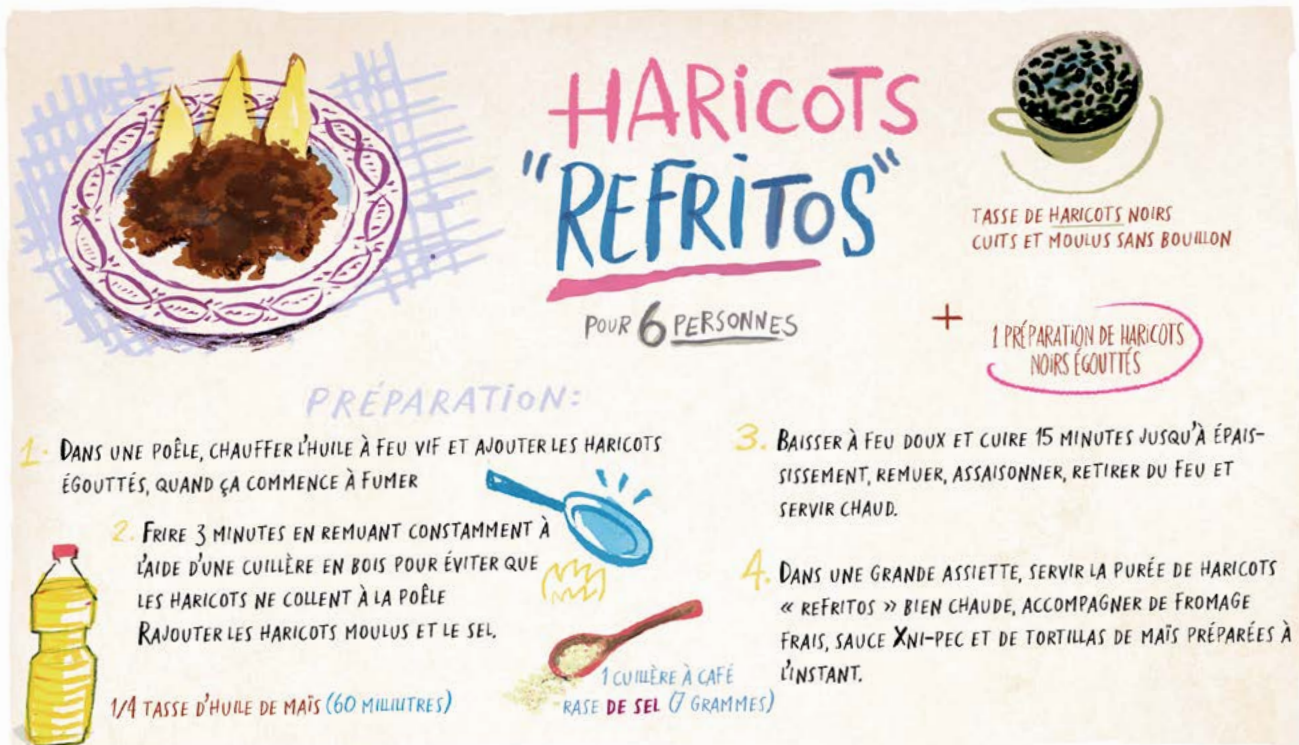 HARICOTS
"REFRITOS"
POUR 6 PERSONNES
TASSE DE HARICOTS NOIRS
CUITS ET MOULUS SANS BOUILLON
+
1 PRÉPARATION DE HARICOTS
NOIRS ÉGOUTTÉS
PRÉPARATION:
1. DANS UNE POÊLE, CHAUFFER L'HUILE À FEU VIF ET AJOUTER LES HARICOTS
ÉGOUTTÉS, QUAND ÇA COMMENCE À FUMER
2. FRIRE 3 MINUTES EN REMUANT CONSTAMMENT À
L'AIDE D'UNE CUILLÈRE EN BOIS POUR ÉVITER QUE
LES HARICOTS NE COLLENT À LA POÊLE
RAJOUTER LES HARICOTS MOULUS ET LE SEL.
1/4 TASSE D'HUILE DE MAÏS (60 MILLILITRES)
1 CUILLÈRE À CAFÉ
RASE DE SEL (7 GRAMMES)
3. BAISSER À FEU DOUX ET CUIRE 15 MINUTES JUSQU'À ÉPAIS-
SISSEMENT, REMUER, ASSAISONNER, RETIRER DU FEU ET
SERVIR CHAUD.
4. DANS UNE GRANDE ASSIETTE, SERVIR LA PURÉE DE HARICOTS
« REFRITOS » BIEN CHAUDE, ACCOMPAGNER DE FROMAGE
FRAIS, SAUCE XNI-PEC ET DE TORTILLAS DE MAÏS PRÉPARÉES À
L'INSTANT.